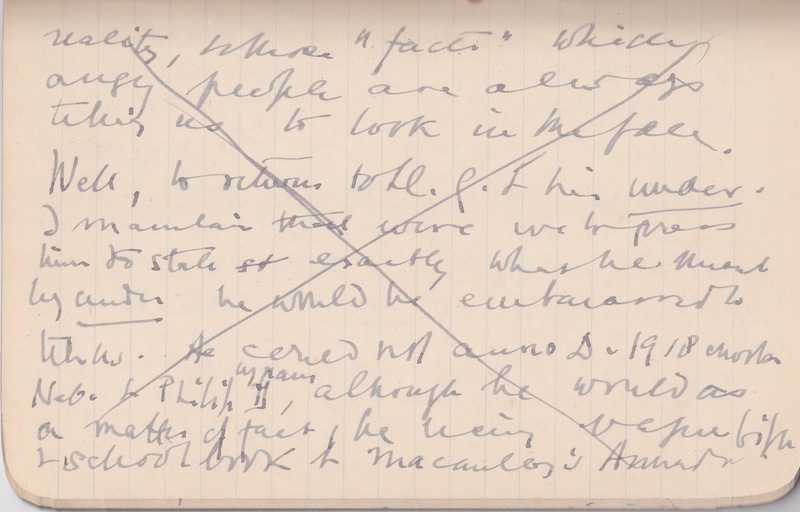 reality, to those "facts" which
angry people are always
telling us to look in the face.
Well, to return to H. J. & his under.
I maintain that were we to press
him to state exactly what he meant
by under he would be embarrassed to
tell us. He could not anno D. 1918
Philip II, although he would as
a matter of fact, he being
& school book & Macaulay's Armada